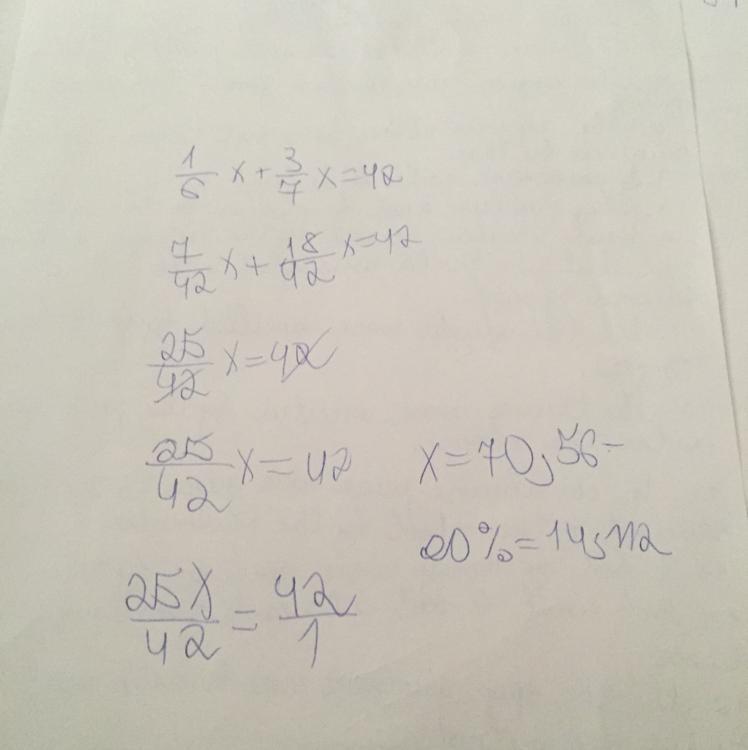 1/6 x + 3/7 x = 42
7/42 x + 18/42 x = 42
25/42 x = 42
25/42 x = 42
x = 70,56
20% = 14,112
25x/42 = 42/1